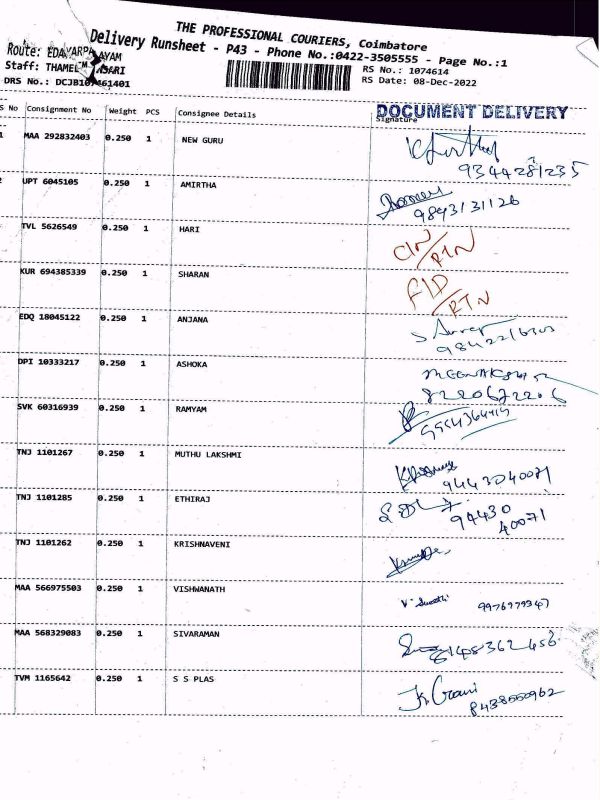 THE PROFESSIONAL COURIERS, Coimbatore
Delivery Runsheet - P43 - Phone No.:0422-3505555 - Page No.:1
Route:
Staff:
DRS No.:
RS No.: 1074614
RS Date: 08-Dec-2022
S No Consignment No Weight PCS Consignee Details Signature
DOCUMENT DELIVERY
1 MAA 292832403 0.250 1 NEW GURU
9344281235
2 UPT 6045105 0.250 1 AMIRTHA
9843131126
TVL 5626549 0.250 1 HARI
RTN
KUR 694385339 0.250 1 SHARAN
RTN
EDQ 18045122 0.250 1 ANJANA
DPI 10333217 0.250 1 ASHOKA
8220672206
SVK 60316939 0.250 1 RAMYAM
TNJ 1101267 0.250 1 MUTHU LAKSHMI
9443040071
TNJ 1101285 0.250 1 ETHIRAJ
94430
40071
TNJ 1101262 0.250 1 KRISHNAVENI
MAA 566975503 0.250 1 VISHWANATH
9976979347
MAA 568329083 0.250 1 SIVARAMAN
8148362456
TVM 1165642 0.250 1 S S PLAS
8438550962